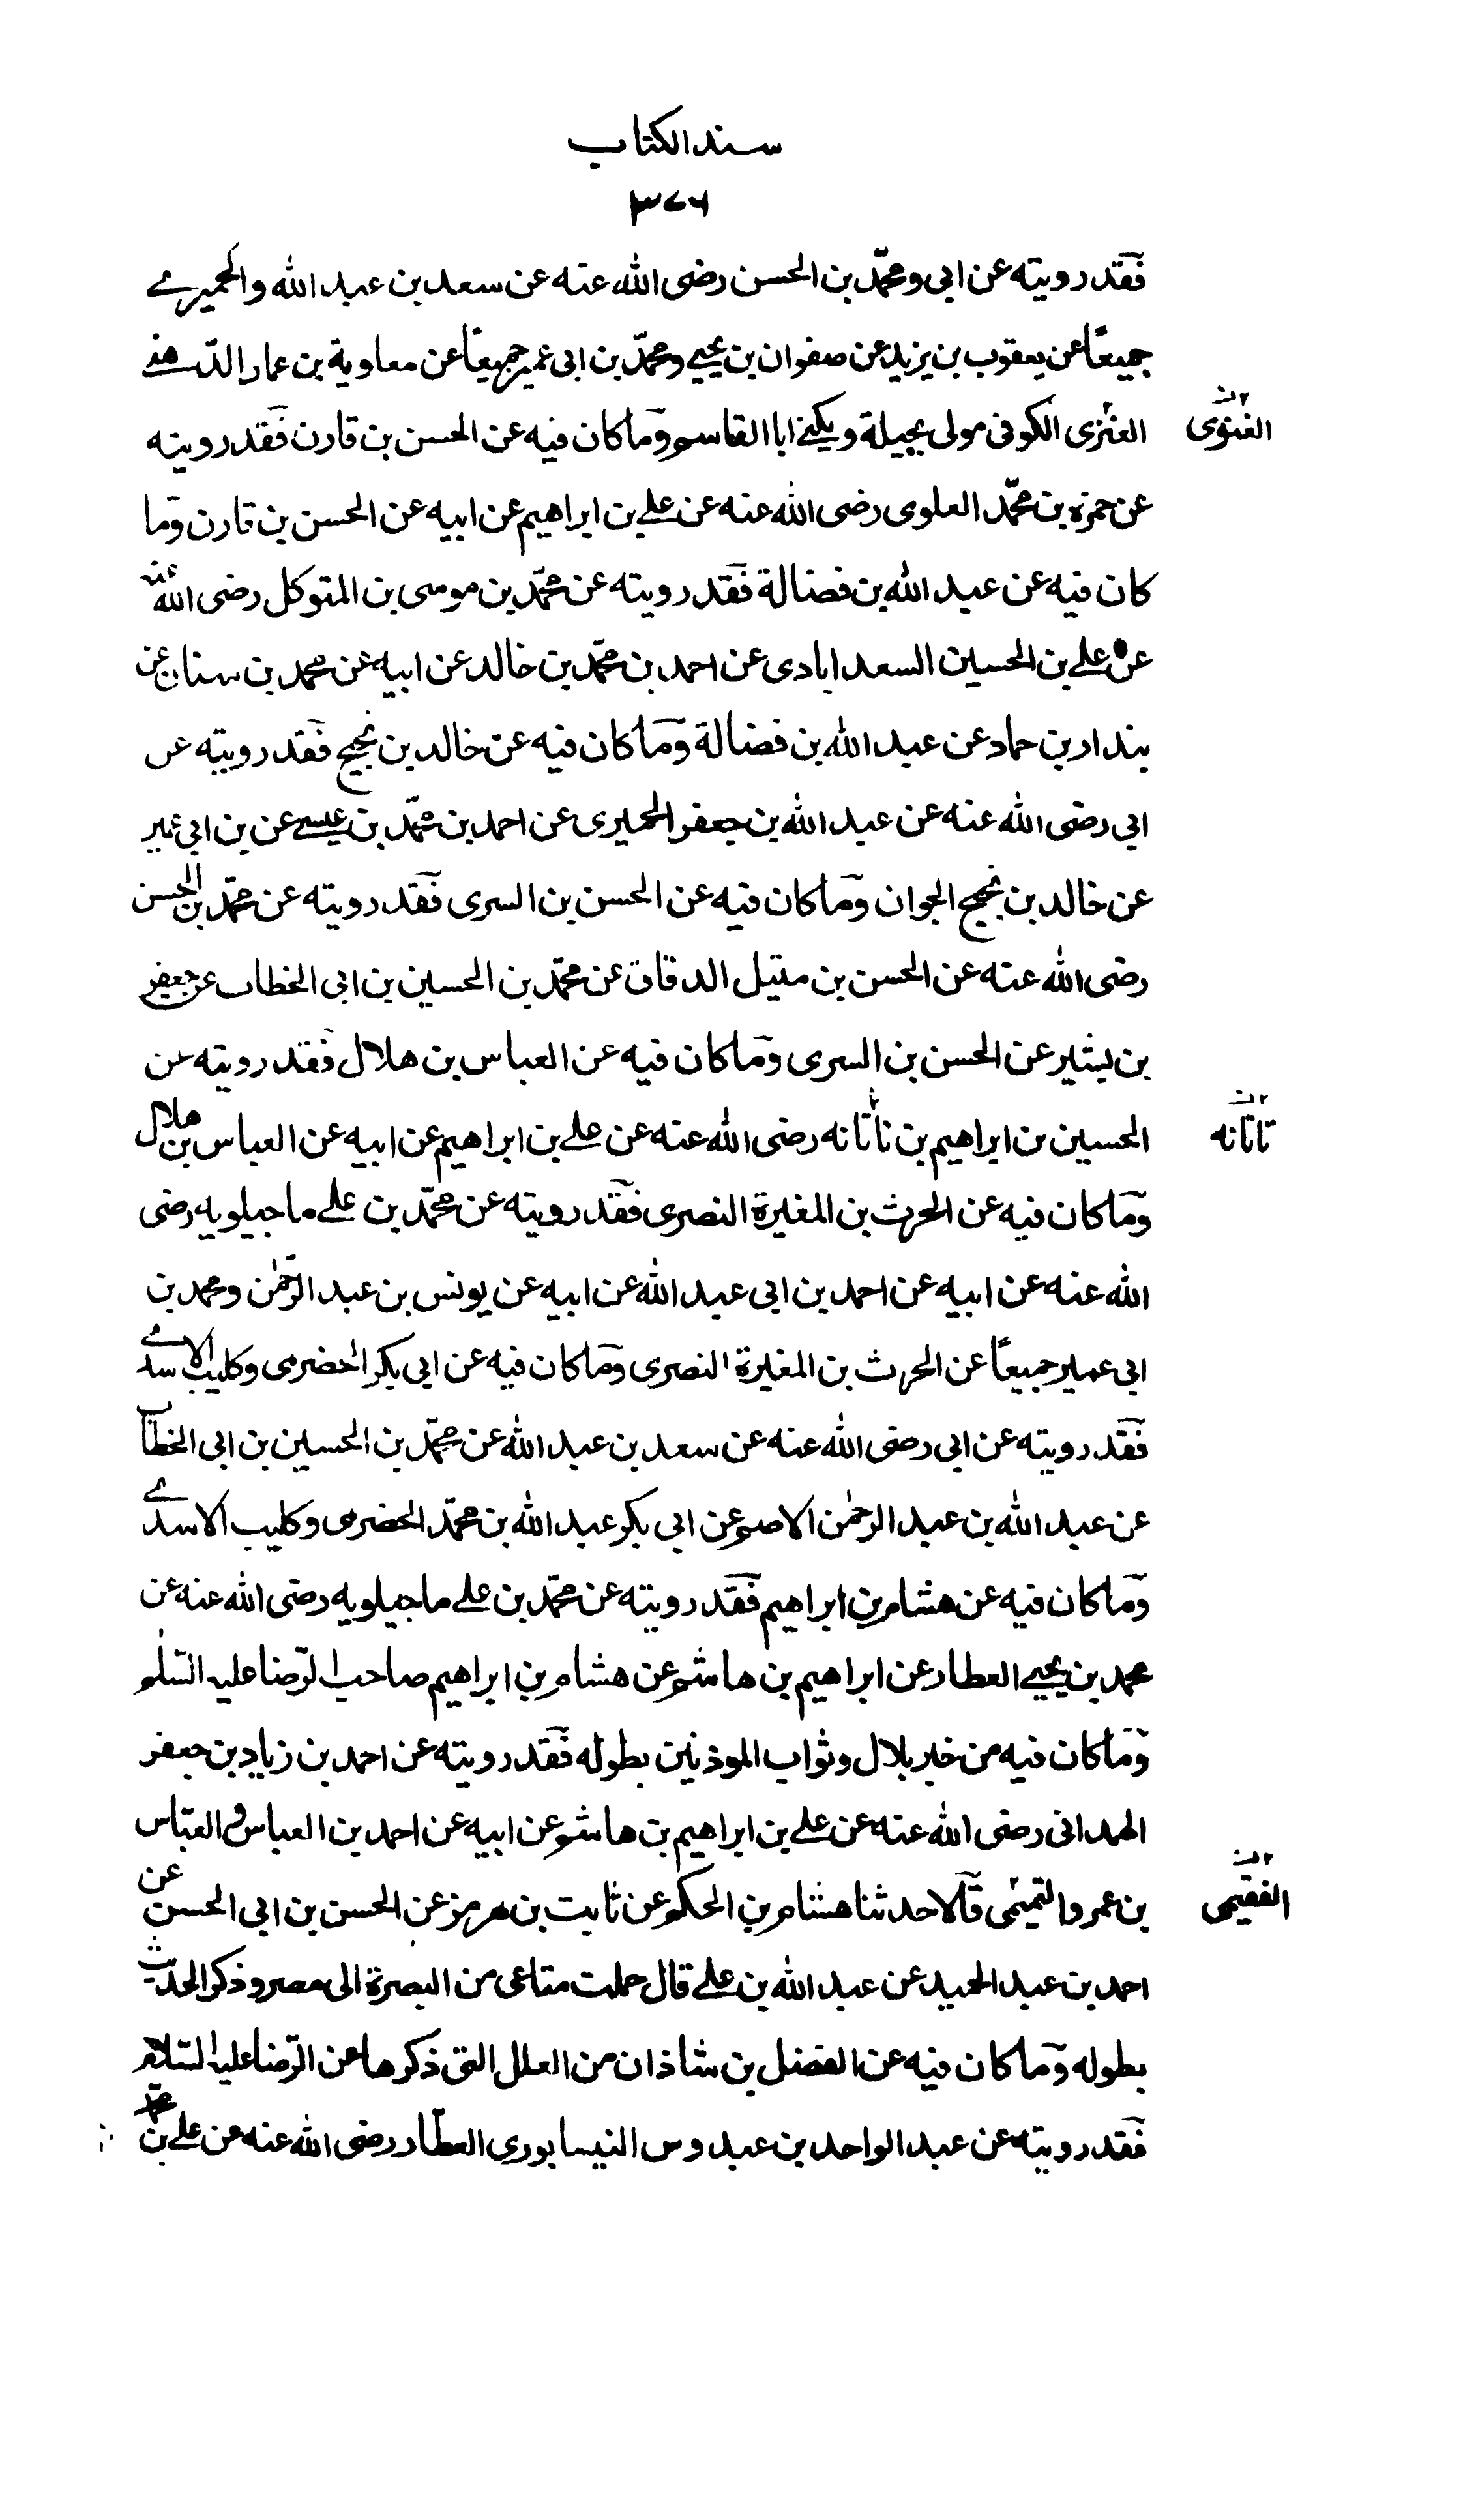 سند الكتاب
٣٧٦
فقد رويته عن ابى ومحمّد بن الحسن رضى الله عنه عن سعد بن عبد الله والحميرے
جميعًا عن يعقوب بن يزيد عن صفوان بن يحيى ومحمّد بن ابى عمير جميعًا عن معاوية بن عمار الدهنے
العنزى الكوفى مولى بجيلة ويكنے ابا القاسم وما كان فيه عن الحسن بن قارن فقد رويته
الغنوى
عن حمزه بن محمّد العلوى رضى الله عنه عن علے بن ابراهيم عن ابيه عن الحسن بن قارن وما
كان فيه عن عبد الله بن فضالة فقد رويته عن محمّد بن موسى بن المتوكل رضى الله عنه
عن علے بن الحسين السعدابادى عن احمد بن محمّد بن خالد عن ابيه عن محمد بن سنان عن
بندار بن حماد عن عبد الله بن فضالة وما كان فيه عن خالد بن نجيح فقد رويته عن
ابي رضى الله عنه عن عبد الله بن جعفر الحميرى عن احمد بن محمّد بن عيسے عن بن ابي عمير
عن خالد بن نجيح الجوان وما كان فيه عن الحسن بن السرى فقد رويته عن محمّد بن الحسن
رضى الله عنه عن الحسن بن متيل الدقاق عن محمّد بن الحسين بن ابى الخطاب عن جعفر
بن بشير عن الحسن بن السرى وما كان فيه عن العباس بن هلال فقد رويته عن
الحسين بن ابراهيم بن ناتانه رضى الله عنه عن علے بن ابراهيم عن ابيه عن العباس بن هلال
تاتانه
وما كان فيه عن الحرث بن المغيرة النصرى فقد رويته عن محمّد بن علے ماجيلويه رضى
الله عنه عن ابيه عن احمد بن ابى عبد الله عن ابيه عن يونس بن عبد الرحمٰن ومحمد بن
ابي عمير جميعًا عن الحرث بن المغيرة النصرى وما كان فيه عن ابي بكر الحضرمى وكليب الاسدے
فقد رويته عن ابى رضى الله عنه عن سعد بن عبد الله عن محمّد بن الحسين بن ابى الخطاب
عن عبد الله بن عبد الرحمٰن الاصم عن ابى بكر عبد الله بن محمّد الحضرمى وكليب الاسدے
وما كان فيه عن هشام بن ابراهيم فقد رويته عن محمّد بن علے ماجيلويه رضى الله عنه عن
محمد بن يحيے العطار عن ابراهيم بن هاشم عن هشام بن ابراهيم صاحب الرّضا عليه السّلٰم
وما كان فيه من خبر بلال وثواب الموذنين بطوله فقد رويته عن احمد بن زياد بن جعفر
الهمدانى رضى الله عنه عن علے بن ابراهيم بن هاشم عن ابيه عن احمد بن العباس و العبّاس
بن عمرو التميمى قالا حدثنا هشام بن الحكم عن ثابت بن هرمز عن الحسن بن ابى الحسن عن
الفقيمى
احمد بن عبد الحميد عن عبد الله بن علے قال حملت متاعى من البصرة الى مصر وذكر الحديث
بطوله وما كان فيه عن الفضل بن شاذان من العلل التى ذكرها عن الرّضا عليه السّلام
فقد رويته عن عبد الواحد بن عبدوس النيسابورى العطّار رضى الله عنه عن علے بن محمّد